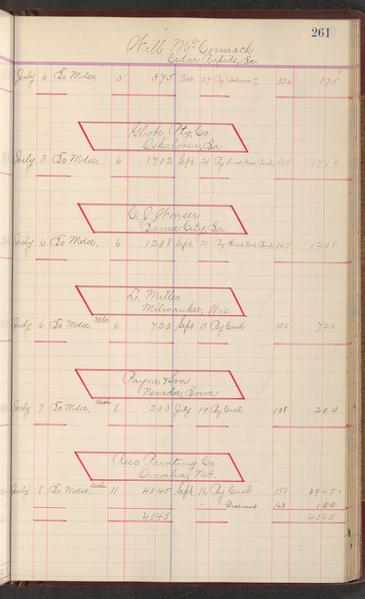 261
Will McCormack
Cedar Rapids, Ia
July 6 To Mdse. 5 3 75 Dec 27 By 326 3 75
Globe Pty. Co.
Oskaloosa, Ia
July 3 To Mdse 6 17 02 Sept 21 By 165 17 02
Ia.
July 6 To Mdse. 6 12 08 Sept 21 By 165 12 08
L. Miller
Milwaukee, Wis
July 6 To Mdse, 6 7 20 Sept 15 By Cash 150 7 20
Payne & Son
Nevada, Iowa
July 7 To Mdse, 8 2 00 July 19 By Cash 108 2 00
Rees Printing Co
Omaha, Neb.
July 8 To Mdse. 11 40 45 Sept. 16 By Cash 150 39 45
" Discount 160 1 00
40 45 40 45